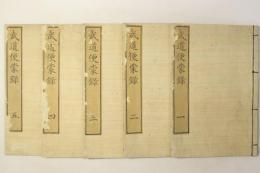 武道便蒙録 一
武道便蒙録 二
武道便蒙録 三
武道便蒙録 四
武道便蒙録 五